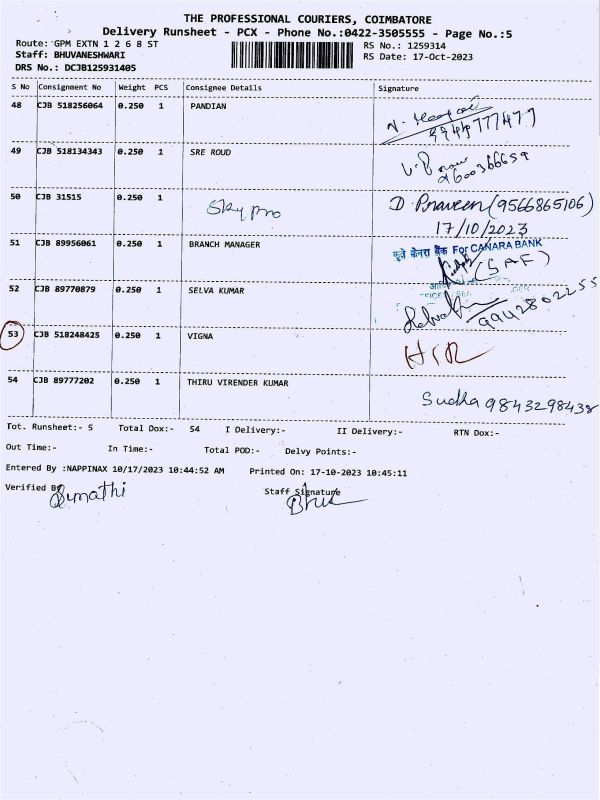 THE PROFESSIONAL COURIERS, COIMBATORE
Delivery Runsheet - PCX - Phone No.:0422-3505555 - Page No.:5
Route: GPM EXTN 1 2 6 8 ST
RS No.: 1259314
Staff: BHUVANESHWARI
RS Date: 17-Oct-2023
DRS No.: DCJB125931405
S No Consignment No Weight PCS Consignee Details Signature
48 CJB 518256064 0.250 1 PANDIAN
9944777477
49 CJB 518134343 0.250 1 SRE ROUD
9600366659
50 CJB 31515 0.250 1 Sky pro D. Praveen (9566865106)
17/10/2023
51 CJB 89956061 0.250 1 BRANCH MANAGER
कृते केनरा बैंक For CANARA BANK
(SAF)
52 CJB 89770879 0.250 1 SELVA KUMAR
9942802255
53 CJB 518248425 0.250 1 VIGNA
54 CJB 89777202 0.250 1 THIRU VIRENDER KUMAR
Sudha 9843298438
Tot. Runsheet:- 5 Total Dox:- 54 I Delivery:- II Delivery:- RTN Dox:-
Out Time:- In Time:- Total POD:- Delvy Points:-
Entered By :NAPPINAX 10/17/2023 10:44:52 AM Printed On: 17-10-2023 10:45:11
Verified By Sumathi
Staff Signature